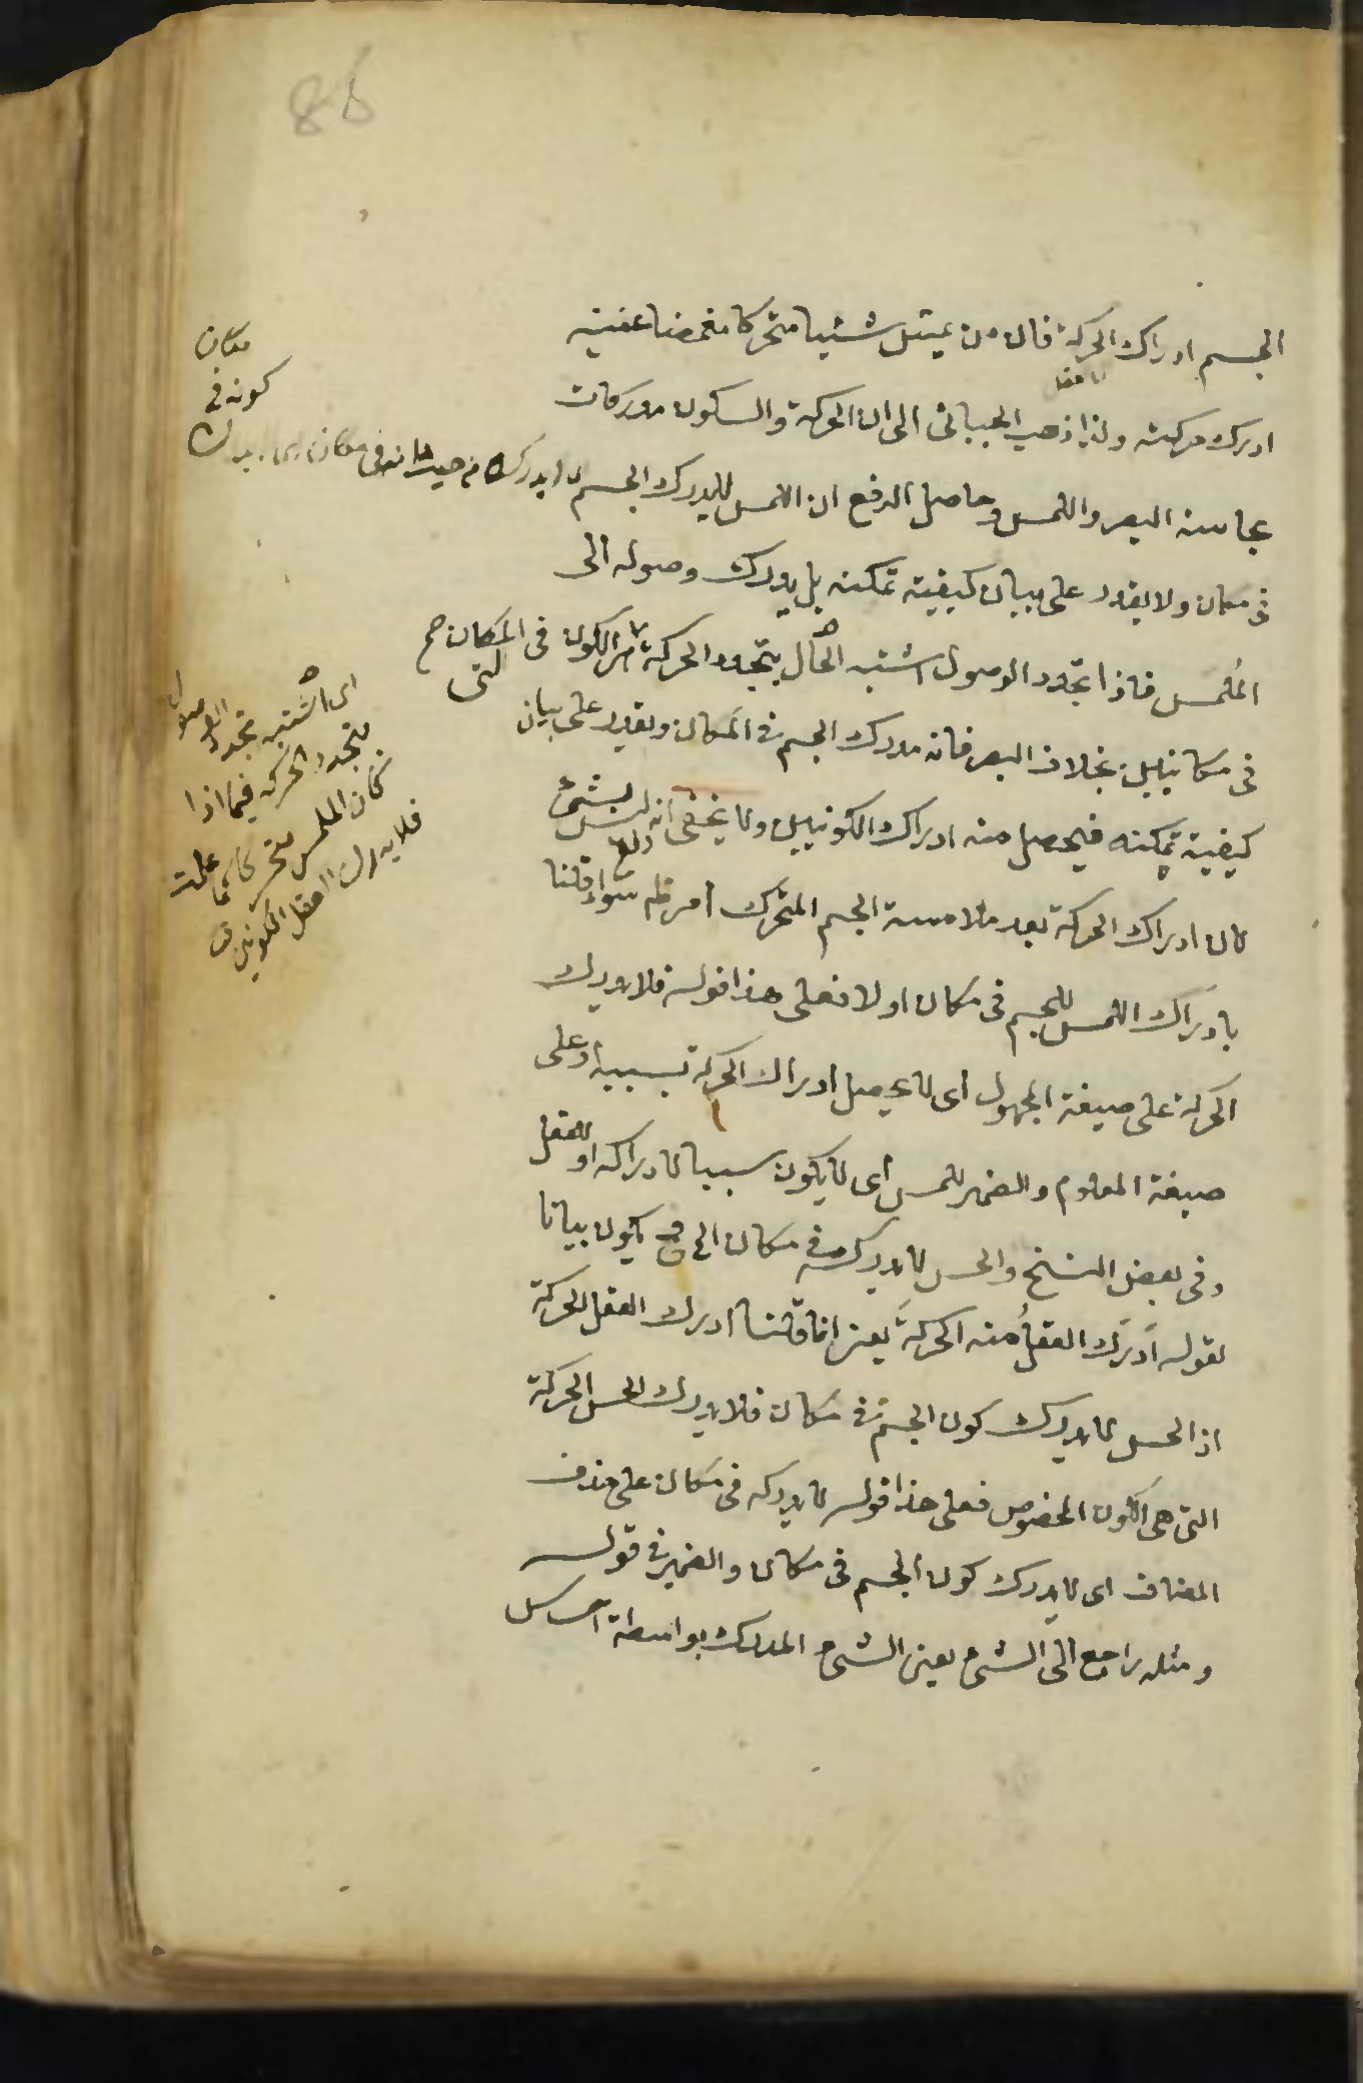 86
الجسم ادراك الحركة فان من يمس شيئا متحركا مغمضا عينيه
ادرك حركته ولذا ذهب الجبائى الى ان الحركة والسكون مدركات
بحاسة البصر واللمس وحاصل الدفع ان اللمس لا يدرك الجسم
فى مكان ولا يقدر على بيان كيفية تمكنه بل يدرك وصوله الى
الملمس فاذا تجدد الوصول اشتبه الحال بتجدد الحركة الكون فى المكان
فى مكانين بخلاف البصر فانه يدرك الجسم فى المكان ويقدر على بيان
كيفية تمكنه فيحصل منه ادراك الكونين ولا يخفى انه ليس بشئ
لان ادراك الحركة بعد ملامسة الجسم المتحرك امر سواء قلنا
بادراك اللمس للجسم فى مكان اولا فعلى هذا قوله فلا يدرك
الحركة على صيغة المجهول اى لا يحصل ادراك الحركة بسببه او على
صيغة المعلوم والضمير للمس اى لا يكون سببا لادراكه او للعقل
وفى بعض النسخ والحس لا يدركه فى مكان الخ يكون بيانا
لقوله ادرك العقل منه الحركة يعنى انما قلنا ادرك العقل الحركة
اذ الحس لا يدرك كون الجسم فى مكان فلا يدرك الحس الحركة
التى هى الكون المخصوص فعلى هذا قوله لا يدركه فى مكان على حذف
المضاف اى لا يدرك كون الجسم فى مكان والضمير فى قوله
ومثله راجع الى الشئ يعنى الشئ المدرك بواسطة
مكان
كونه فى
اى اشتبه تجدد الوصول
بتجدد الحركة فيما اذا
كان الملمس متحركا
فلا يدرك العقل الكونين